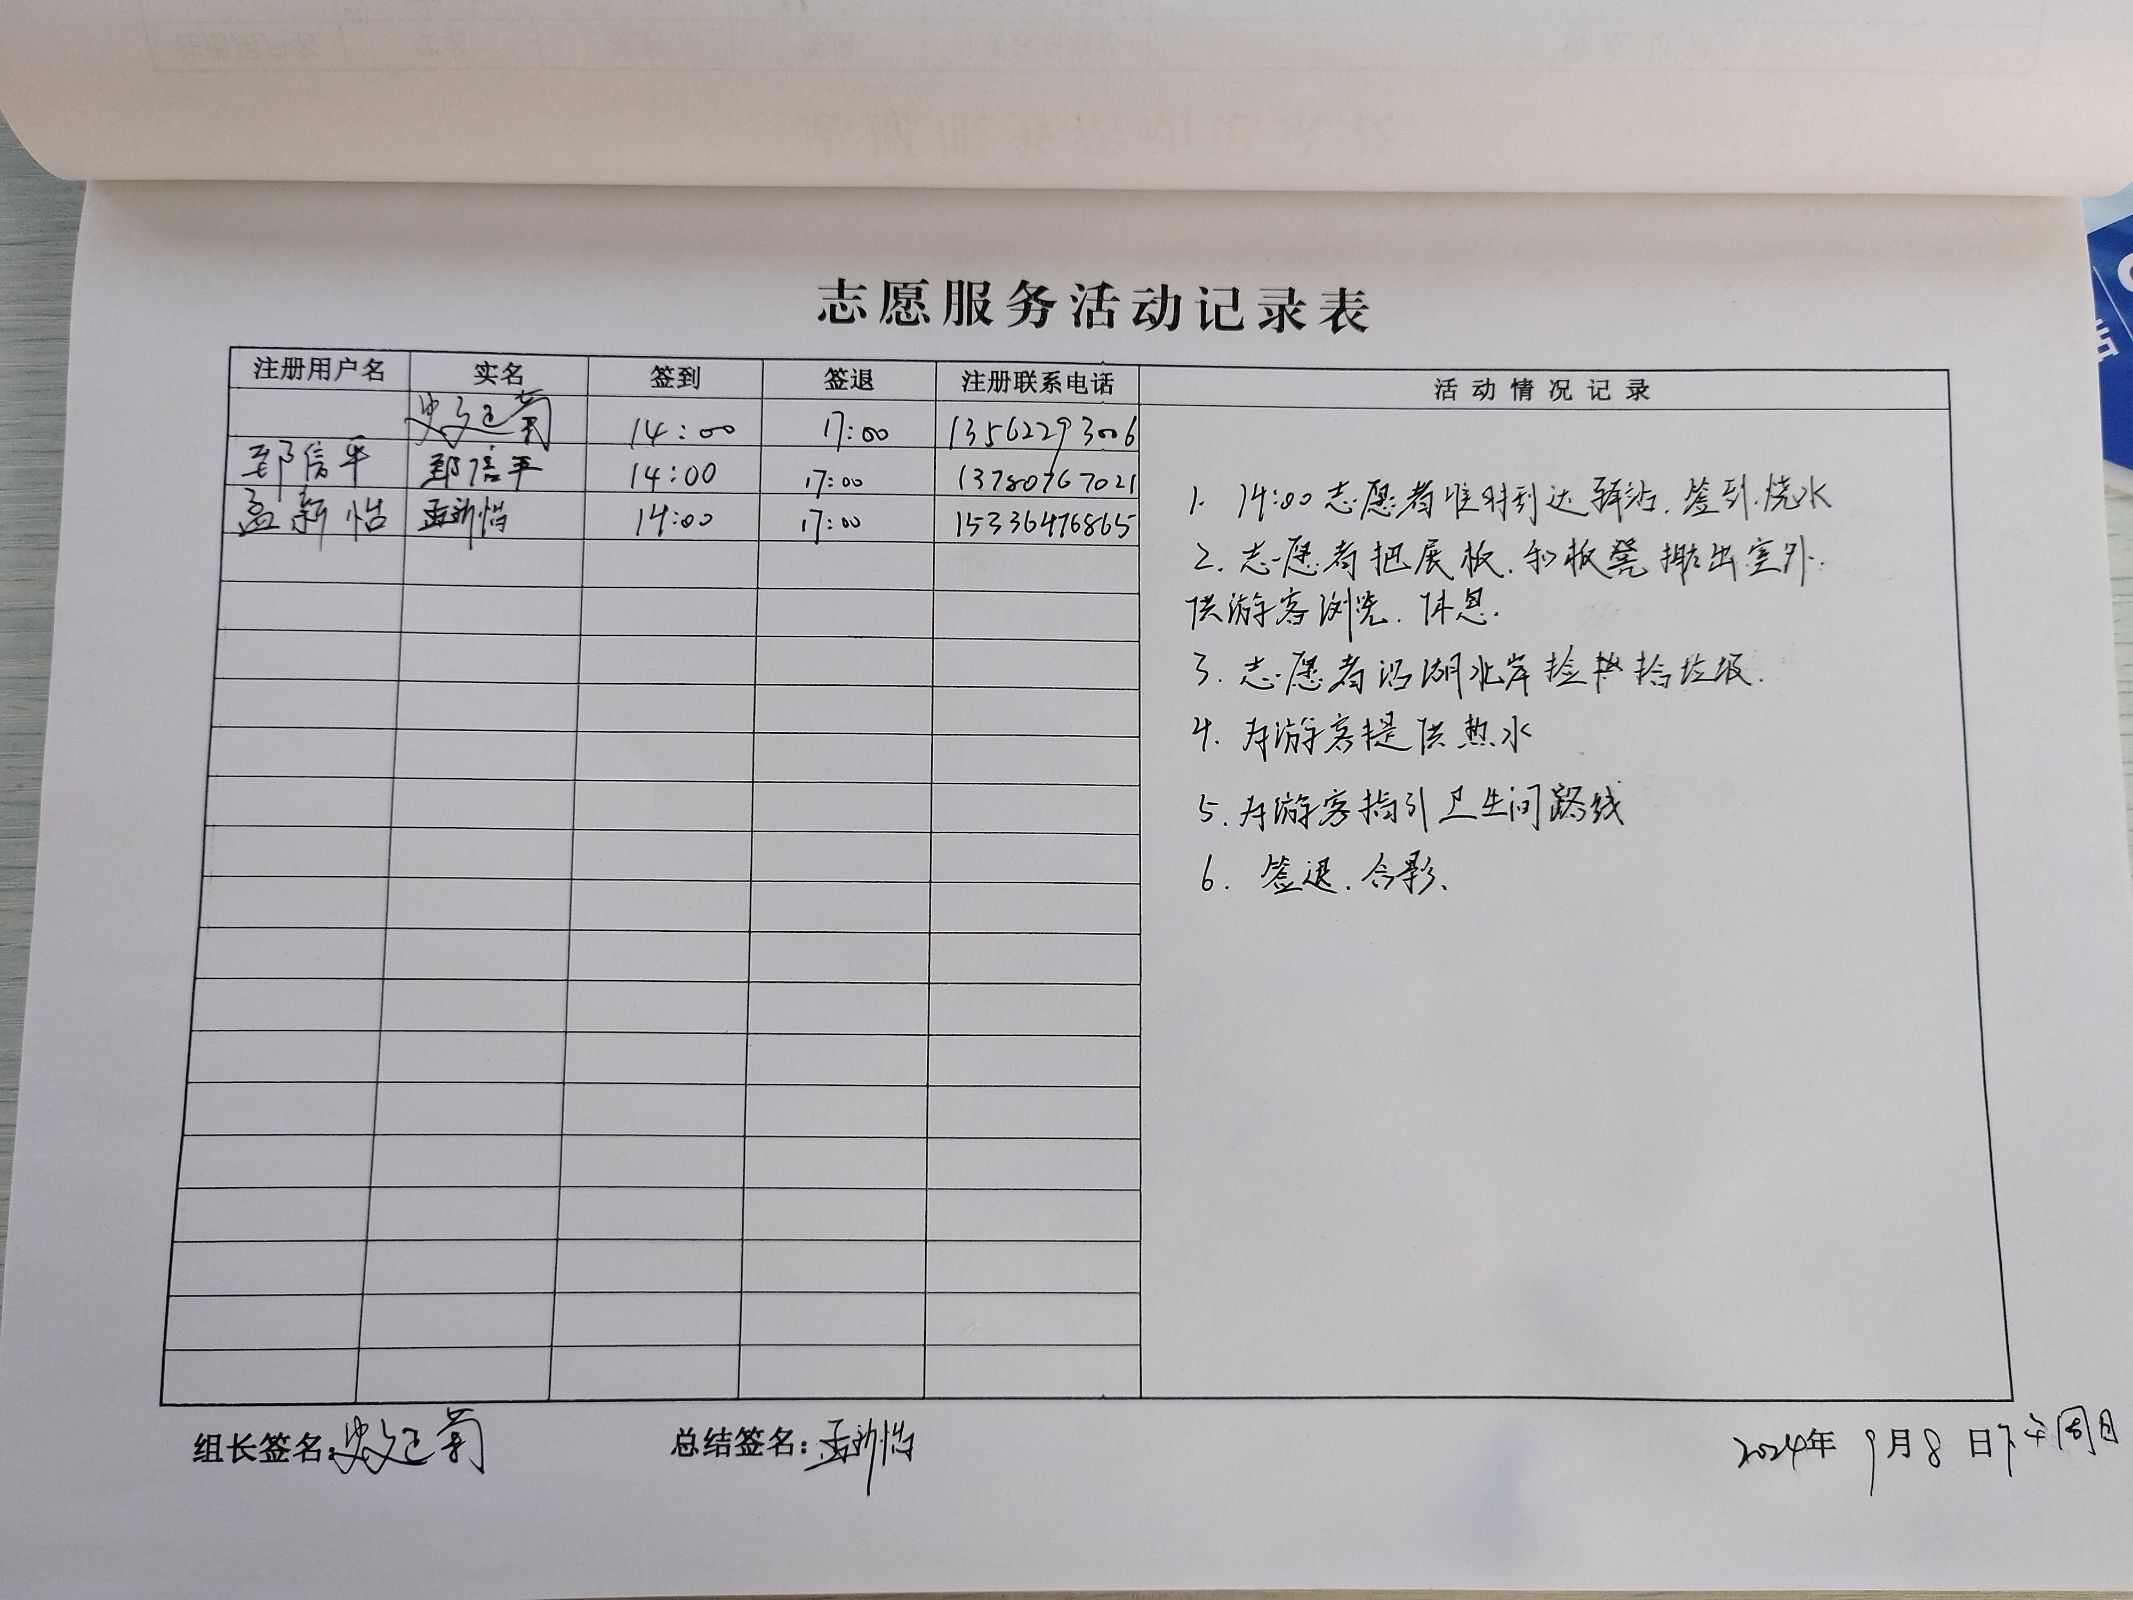 志愿服务活动记录表
注册用户名 实名 签到 签退 注册联系电话 活动情况记录
14:00 17:00 13562293006
郅信平 郅信平 14:00 17:00 13780767021
孟新怡 孟新怡 14:00 17:00 15336476865
1. 14:00志愿者准时到达驿站.签到.烧水
2. 志愿者把展板.和板凳搬出室外.
供游客浏览.休息.
3. 志愿者沿湖北岸捡拾垃圾.
4. 为游客提供热水
5. 为游客指引卫生间路线
6. 签退.合影、
组长签名: 总结签名:孟新怡 2024年9月8日下午周日